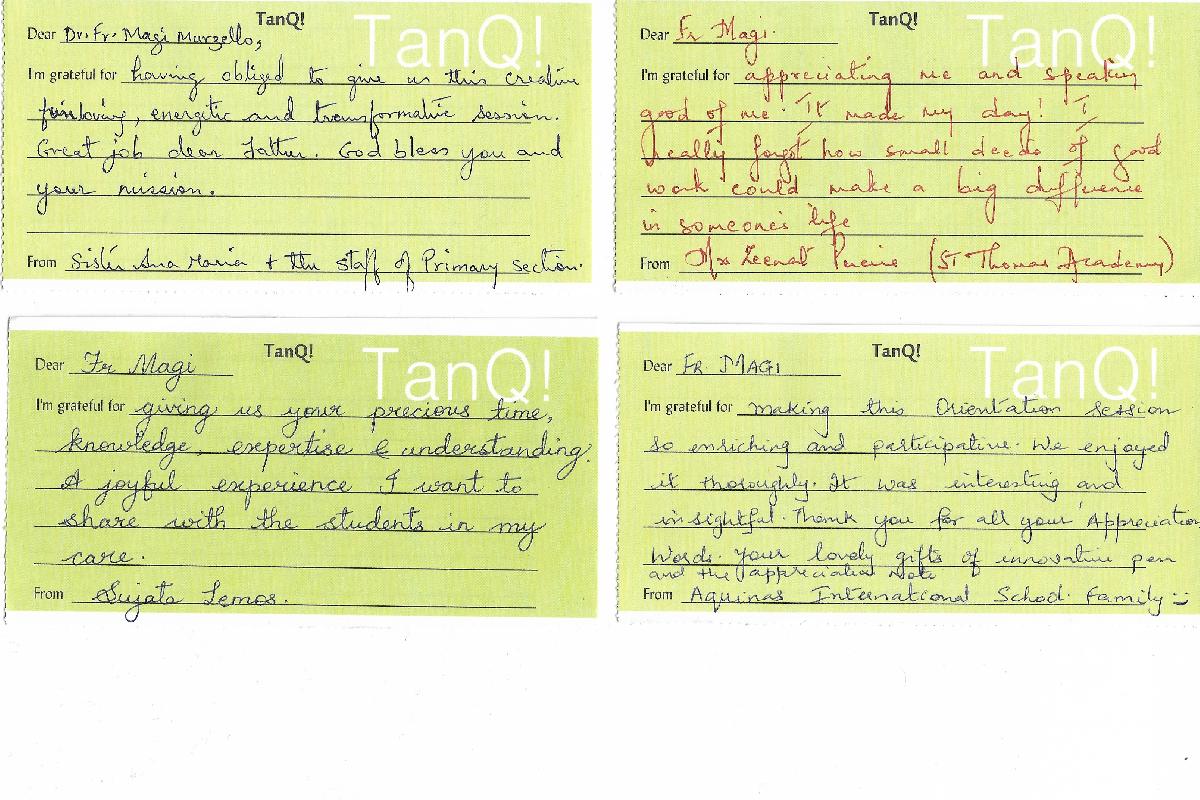 TanQ!
TanQ!
Dear Dr. Fr. Magi Murzello,
I'm grateful for having obliged to give us this creative
funloving, energetic and transformative session.
Great job dear Father. God bless you and
your mission.
From Sister Ana Maria + the staff of Primary section.
TanQ!
TanQ!
Dear Fr Magi.
I'm grateful for appreciating me and speaking
good of me. It made my day! I
really forgot how small deeds of good
work could make a big difference
in someone's life
From Mrs Zeenat (ST Thomas Academy)
TanQ!
TanQ!
Dear Fr Magi
I'm grateful for giving us your precious time,
knowledge, expertise & understanding.
A joyful experience I want to
share with the students in my
care.
From Sujata Lemos.
TanQ!
TanQ!
Dear FR. MAGI
I'm grateful for making this Orientation session
so enriching and participative. We enjoyed
it thoroughly. It was interesting and
insightful. Thank you for all your Appreciation
Words. Your lovely gifts of innovative pen
and the appreciation note
From Aquinas International School Family :)